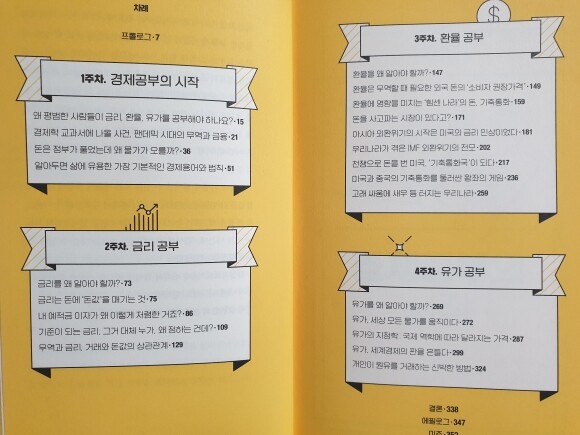 차례
프롤로그 · 7
1주차. 경제공부의 시작
왜 평범한 사람들이 금리, 환율, 유가를 공부해야 하나요? · 15
경제학 교과서에 나올 사건, 팬데믹 시대의 무역과 금융 · 21
돈은 정부가 풀었는데 왜 물가가 오를까? · 36
알아두면 삶에 유용한 가장 기본적인 경제용어와 법칙 · 51
2주차. 금리 공부
금리를 왜 알아야 할까? · 73
금리는 돈에 '돈값'을 매기는 것 · 75
내 예적금 이자가 왜 이렇게 저렴한 거죠? · 86
기준이 되는 금리, 그거 대체 누가, 왜 정하는 건데? · 109
무역과 금리, 거래와 돈값의 상관관계 · 129
$
3주차. 환율 공부
환율을 왜 알아야 할까? · 147
환율은 무역할 때 필요한 외국 돈의 '소비자 권장가격' · 149
환율에 영향을 미치는 '힘센 나라'의 돈, 기축통화 · 159
돈을 사고파는 시장이 있다고? · 171
아시아 외환위기의 시작은 미국의 금리 인상이었다 · 181
우리나라가 겪은 IMF 외환위기의 전모 · 202
전쟁으로 돈을 번 미국, '기축통화국'이 되다 · 217
미국과 중국의 기축통화를 둘러싼 왕좌의 게임 · 236
고래 싸움에 새우 등 터지는 우리나라 · 259
4주차. 유가 공부
유가를 왜 알아야 할까? · 269
유가, 세상 모든 물가를 움직이다 · 272
유가의 지정학 : 국제 역학에 따라 달라지는 가격 · 287
유가, 세계경제의 판을 흔들다 · 299
개인이 원유를 거래하는 신박한 방법 · 324
결론 · 338
에필로그 · 347
미주 · 352